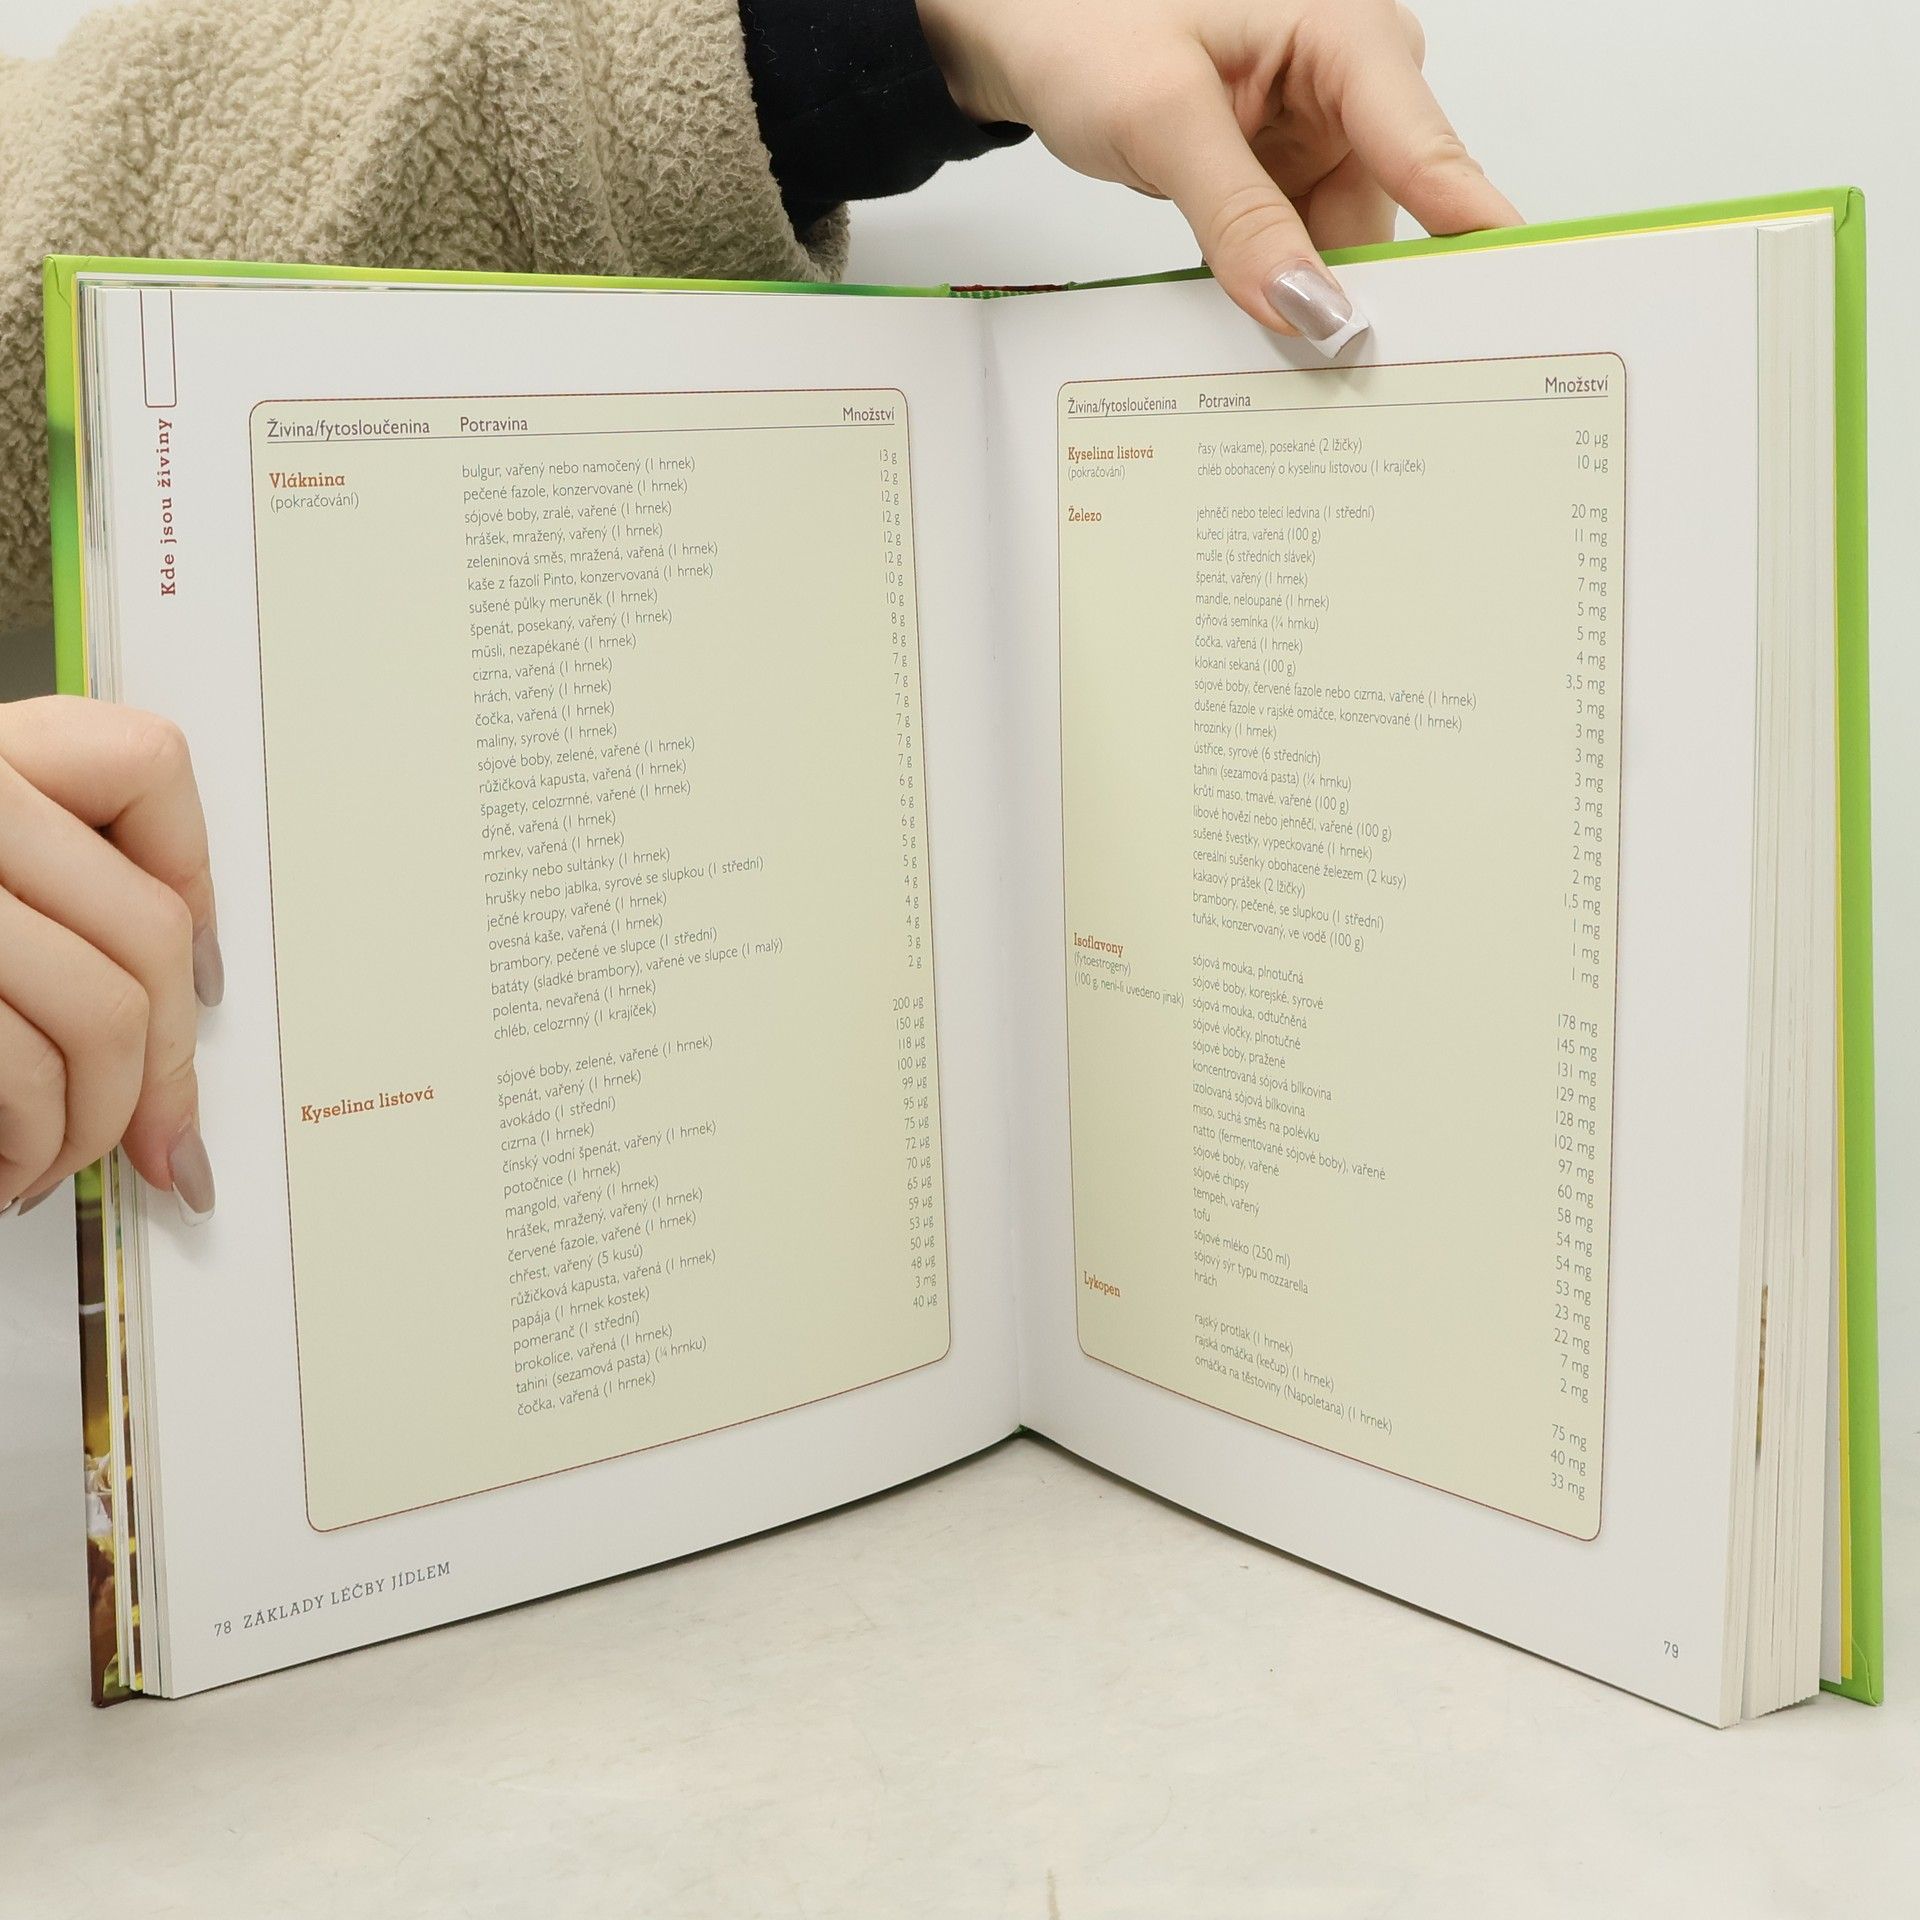 Kde jsou živiny
Živina/fytosloučenina Potravina Množství
Vláknina bulgur, vařený nebo namočený (1 hrnek) 13 g
(pokračování) pečené fazole, konzervované (1 hrnek) 12 g
sójové boby, zralé, vařené (1 hrnek) 12 g
hrášek, mražený, vařený (1 hrnek) 12 g
zeleninová směs, mražená, vařená (1 hrnek) 12 g
kaše z fazolí Pinto, konzervovaná (1 hrnek) 12 g
sušené půlky meruněk (1 hrnek) 10 g
špenát, posekaný, vařený (1 hrnek) 10 g
müsli, nezapékané (1 hrnek) 8 g
cizrna, vařená (1 hrnek) 8 g
hrách, vařený (1 hrnek) 7 g
čočka, vařená (1 hrnek) 7 g
maliny, syrové (1 hrnek) 7 g
sójové boby, zelené, vařené (1 hrnek) 7 g
růžičková kapusta, vařená (1 hrnek) 7 g
špagety, celozrnné, vařené (1 hrnek) 7 g
dýně, vařená (1 hrnek) 6 g
mrkev, vařená (1 hrnek) 6 g
rozinky nebo sultánky (1 hrnek) 6 g
hrušky nebo jablka, syrové se slupkou (1 střední) 5 g
ječné kroupy, vařené (1 hrnek) 5 g
ovesná kaše, vařená (1 hrnek) 4 g
brambory, pečené ve slupce (1 střední) 4 g
batáty (sladké brambory), vařené ve slupce (1 malý) 4 g
polenta, nevařená (1 hrnek) 3 g
chléb, celozrnný (1 krajíček) 2 g
Kyselina listová sójové boby, zelené, vařené (1 hrnek) 200 µg
špenát, vařený (1 hrnek) 150 µg
avokádo (1 střední) 118 µg
cizrna (1 hrnek) 100 µg
čínský vodní špenát, vařený (1 hrnek) 99 µg
potočnice (1 hrnek) 95 µg
mangold, vařený (1 hrnek) 75 µg
hrášek, mražený, vařený (1 hrnek) 72 µg
červené fazole, vařené (1 hrnek) 70 µg
chřest, vařený (5 kusů) 65 µg
růžičková kapusta, vařená (1 hrnek) 59 µg
papája (1 hrnek kostek) 53 µg
pomeranč (1 střední) 50 µg
brokolice, vařená (1 hrnek) 48 µg
tahini (sezamová pasta) (¼ hrnku) 3 mg
čočka, vařená (1 hrnek) 40 µg
78 ZÁKLADY LÉČBY JÍDLEM
Živina/fytosloučenina Potravina Množství
Kyselina listová řasy (wakame), posekané (2 lžičky) 20 µg
(pokračování) chléb obohacený o kyselinu listovou (1 krajíček) 10 µg
Železo jehněčí nebo telecí ledvina (1 střední) 20 mg
kuřecí játra, vařená (100 g) 11 mg
mušle (6 středních slávek) 9 mg
špenát, vařený (1 hrnek) 7 mg
mandle, neloupané (1 hrnek) 5 mg
dýňová semínka (¼ hrnku) 5 mg
čočka, vařená (1 hrnek) 4 mg
klokaní sekaná (100 g) 3,5 mg
sójové boby, červené fazole nebo cizrna, vařené (1 hrnek) 3 mg
dušené fazole v rajské omáčce, konzervované (1 hrnek) 3 mg
hrozinky (1 hrnek) 3 mg
ústřice, syrové (6 středních) 3 mg
tahini (sezamová pasta) (¼ hrnku) 3 mg
krůtí maso, tmavé, vařené (100 g) 2 mg
libové hovězí nebo jehněčí, vařené (100 g) 2 mg
sušené švestky, vypeckované (1 hrnek) 2 mg
cereální sušenky obohacené železem (2 kusy) 1,5 mg
kakaový prášek (2 lžičky) 1 mg
brambory, pečené, se slupkou (1 střední) 1 mg
tuňák, konzervovaný, ve vodě (100 g) 1 mg
Isoflavony sójová mouka, plnotučná 178 mg
(fytoestrogeny) sójové boby, korejské, syrové 145 mg
(100 g, není-li uvedeno jinak) sójová mouka, odtučněná 131 mg
sójové vločky, plnotučné 129 mg
sójové boby, pražené 128 mg
koncentrovaná sójová bílkovina 102 mg
izolovaná sójová bílkovina 97 mg
miso, suchá směs na polévku 60 mg
natto (fermentované sójové boby), vařené 58 mg
sójové boby, vařené 54 mg
sójové chipsy 54 mg
tempeh, vařený 53 mg
tofu 23 mg
sójové mléko (250 ml) 22 mg
sójový sýr typu mozzarella 7 mg
hrách 2 mg
Lykopen rajský protlak (1 hrnek) 75 mg
rajská omáčka (kečup) (1 hrnek) 40 mg
omáčka na těstoviny (Napoletana) (1 hrnek) 33 mg
79